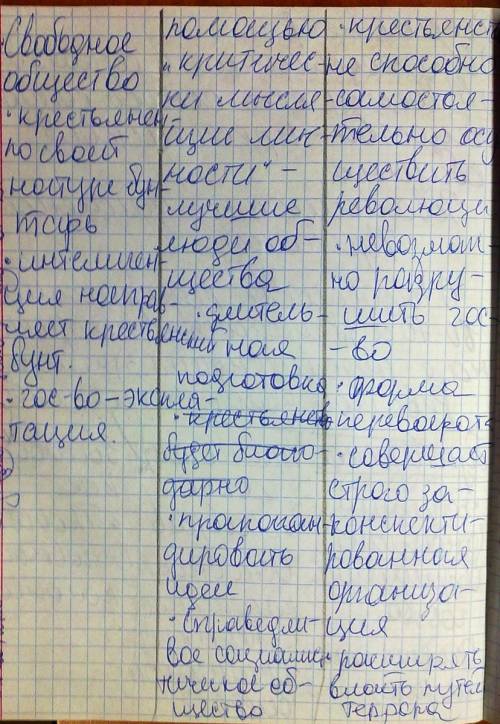 Свободное
общество
· крестьянен-
по своей
натуре бун-
тарь
· интеллиген-
ция направ-
ляет крестьянский
бунт.
· гос-во – эксплуа-
тация.
помощью
„критичес-
ки мысля-
щие лич-
ности" –
лучшие
люди об-
щества
· длитель-
ная
подготовка
· крестьянств
будет благо-
дарно
· пропаган-
дировать
идеи
· Справедли-
вое социалис-
тическое об-
щество
· крестьянств
не способно
самостоя-
тельно осу
ществить
революци
· невозмож-
но разру-
шить гос-
-во
· форма
переворота
· совершает
строго за-
конспекти-
рованная
организа-
ция
· расширять
власть путем
террора